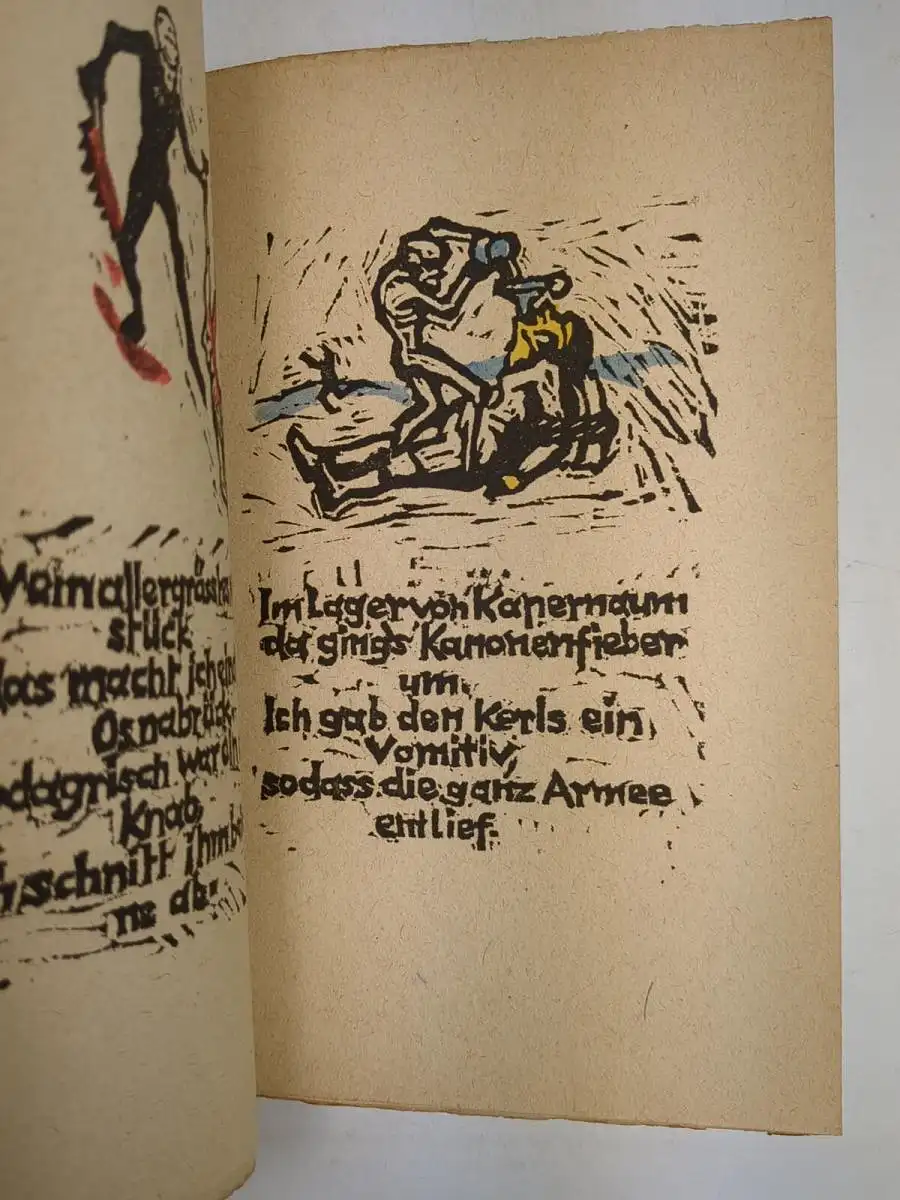 Mein allergrösstes
stück
das macht ich
Osnabrück
podagrisch war
Knab
schnitt ihm
ne ab.
Im Lager von Kapernaum
da ging's Kanonenfieber
um.
Ich gab den Kerls ein
Vomitiv,
sodass die ganz Armee
entlief.